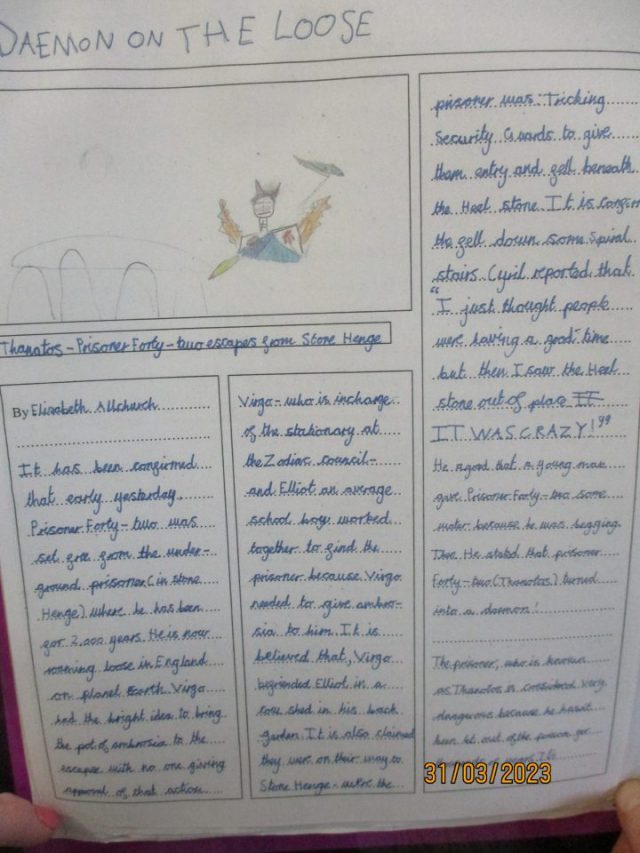 DAEMON ON THE LOOSE
Thanatos - Prisoner Forty - two escapes from Stone Henge
By Elizabeth Allchurch
It has been confirmed
that early yesterday
Prisoner Forty - two was
set free from the under-
ground prisoner (in stone
Henge) where he has been
for 2,000 years. He is now
roaming loose in England
on planet Earth. Virgo
had the bright idea to bring
the pot of ambrosia to the
escapee with no one giving
approval of that action
Virgo - who is incharge
of the stationary at
the Zodiac council -
and Elliot an average
school boy worked
together to find the
prisoner because Virgo
needed to give ambro-
sia to him. It is
believed that, Virgo
befriended Elliot in a
cow shed in his back
garden. It is also claimed
they were on their way to
Stone Henge - were the
prisoner was. Tricking
Security Guards to give
them entry and fell beneath
the Heel stone. It is
He fell down some spiral
stairs. Cyril reported that
"I just thought people
were having a good time
but then I saw the Heel
stone out of place
IT WAS CRAZY!"
that a young man
give Prisoner Forty - two some
water because he was begging.
He stated that prisoner
Forty - two (Thanatos) turned
into a daemon!
The prisoner, who is known
as Thanatos is considered very
dangerous because he hasn't
been let out of the prison for
31/03/2023